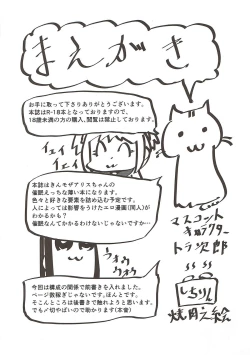 まえがき
お手に取って下さりありがとうございます。
本誌はR-18本となっておりますので、
18歳未満の方の購入、閲覧は禁止しております。
イェイ
イェーイ
本誌はきんモザアリスちゃんの
催眠えっちな薄い本になります。
色々好きな要素を詰め込む予定です。
人によっては影響をうけたエロ漫画(同人)が
わかるかも?
催眠なんてかかるわけないじゃないですか…
マスコット
キャラクター
トラ次郎
うおぉ
うおぉ
しちりん
今回は構成の関係で前書きを入れました。
ページ数稼ぎじゃないです。ほんとです。
そこんところは後書きで触れようと思います。
でも〆切やばいので助かります(本音)